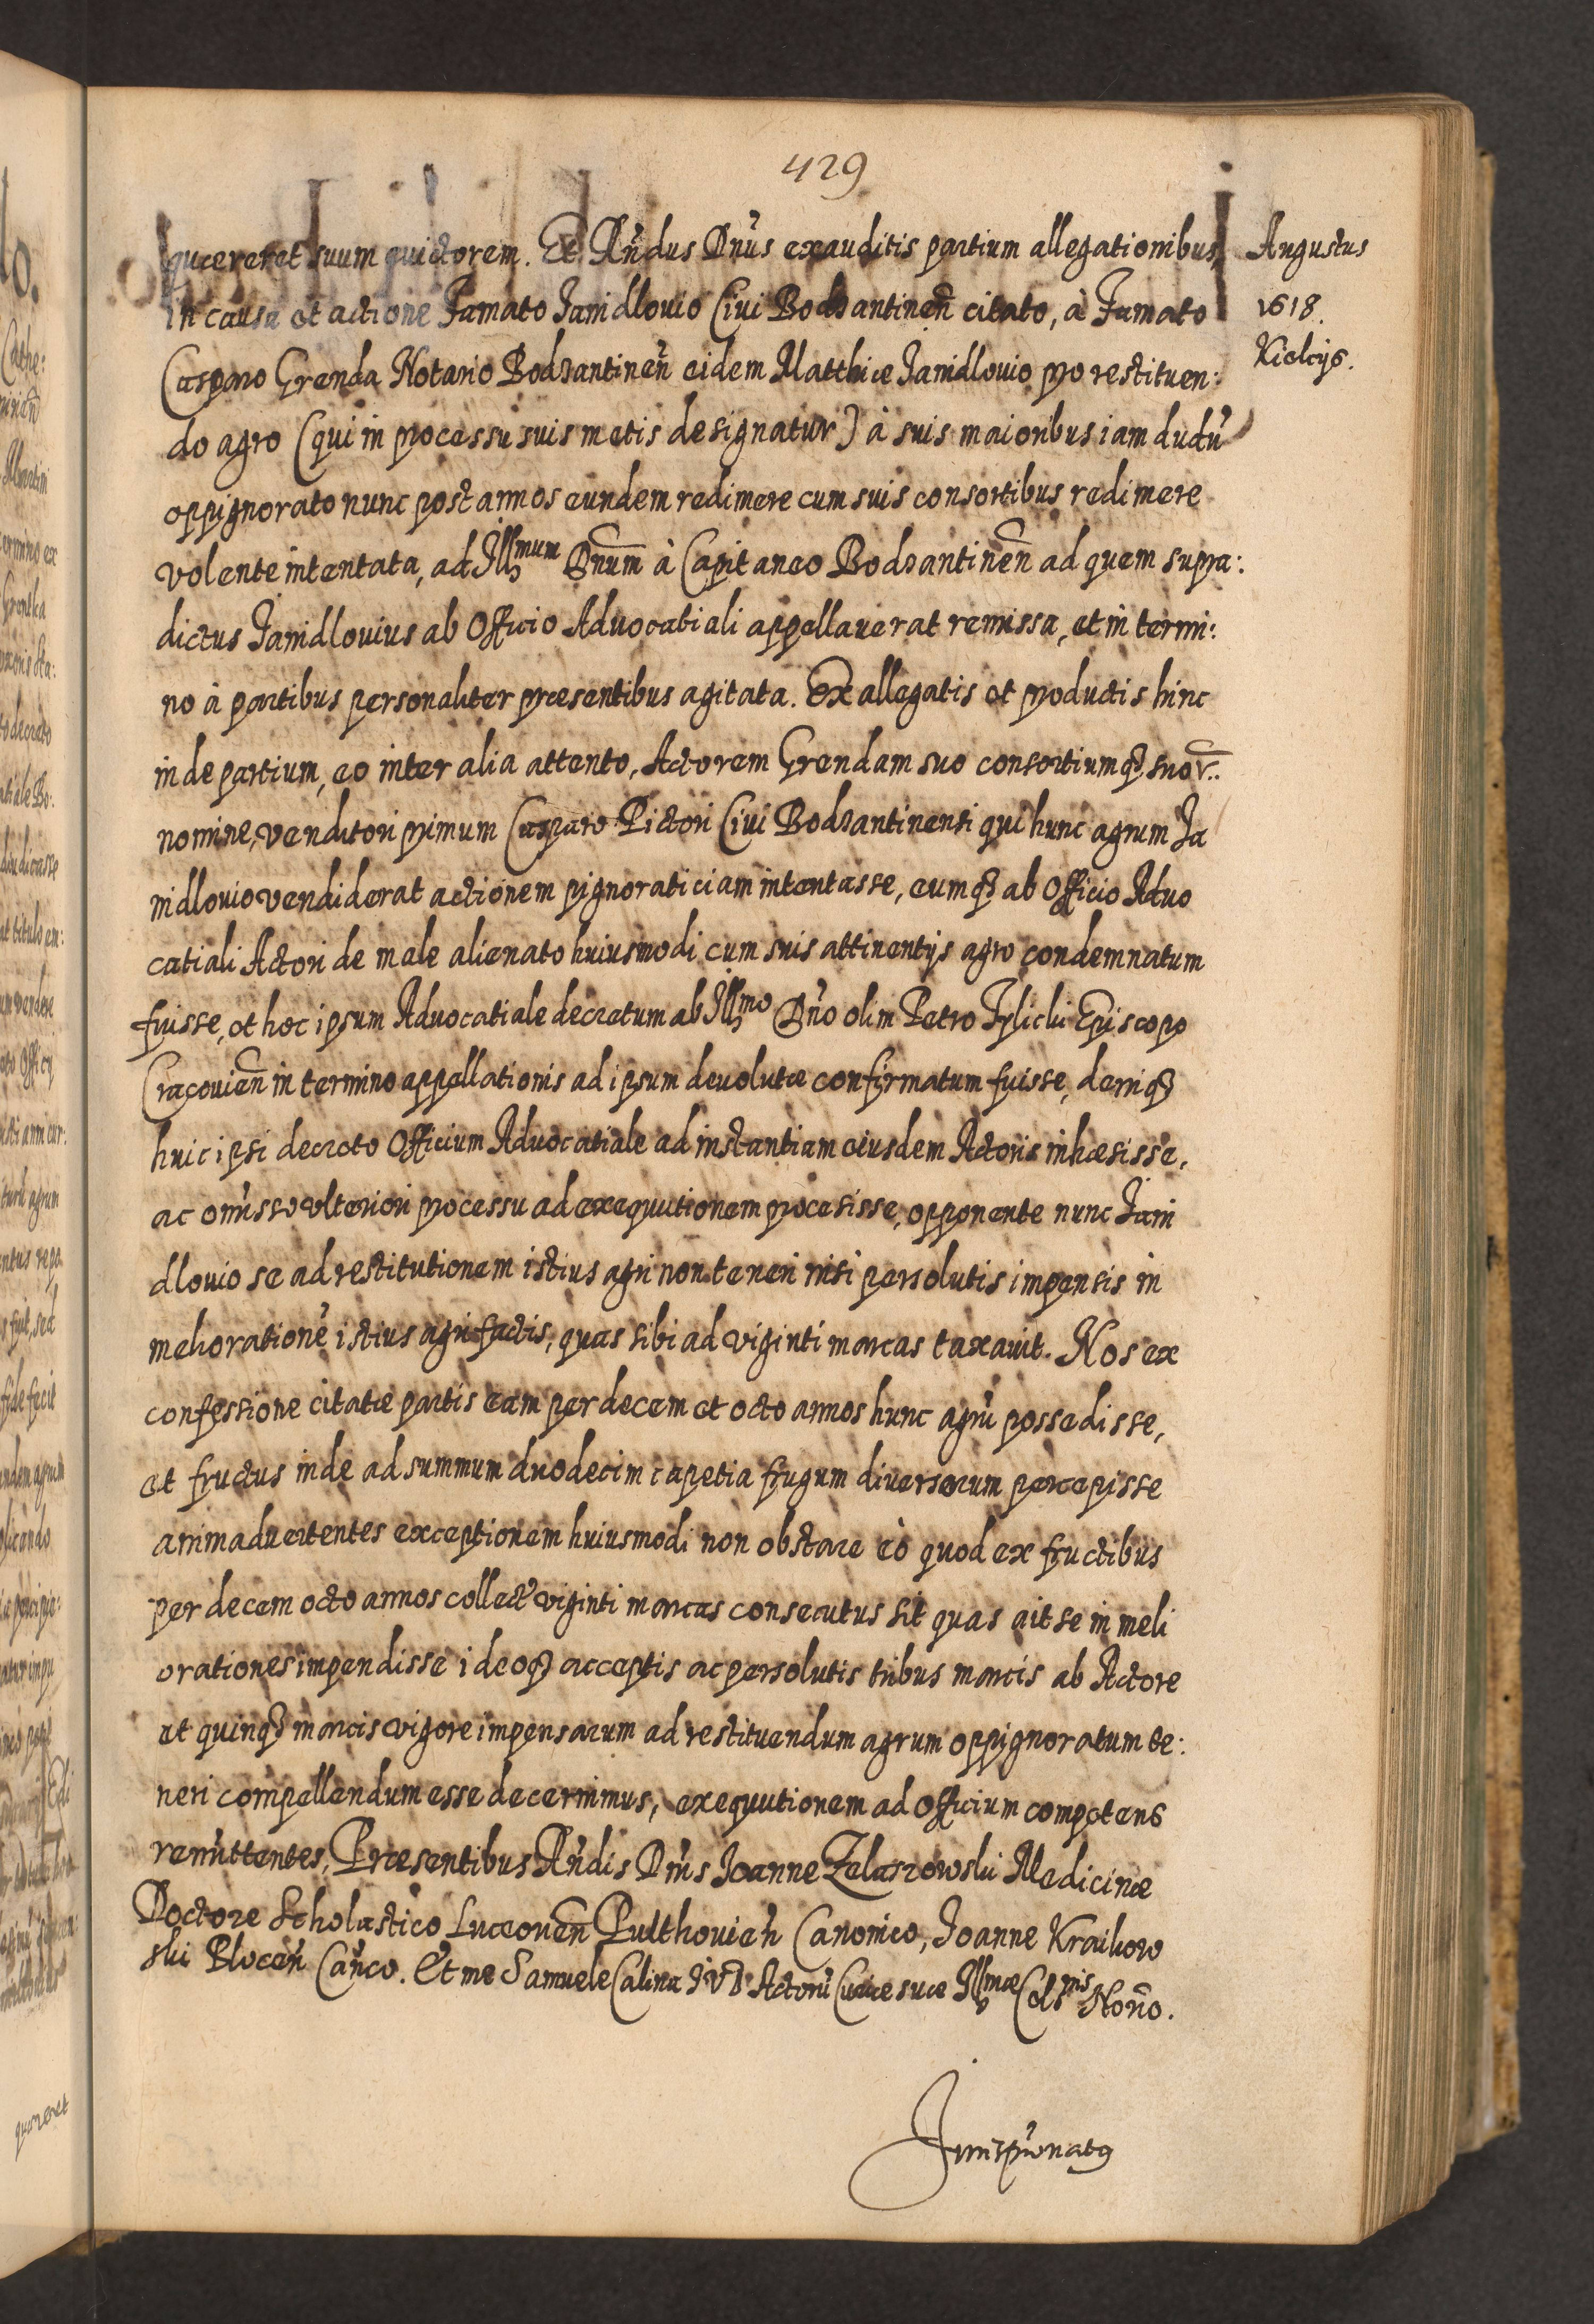 429
quæreret suum quietorem. Et Rn̄dus Dn̄us exauditis partium allegationibus,
Augustus
in causa et actione Famato Janidlovio Civi Bodzantinen̄ citato, à Famato
1618.
Casparo Grenda Notario Bodzantinen̄ eidem Matthiæ Janidlovio pro restituen:
Kielcijs.
do agro (qui in processu suis metis designatur) à suis maioribus iam dudū
oppignorato nunc post annos eundem redimere cum suis consortibus redimere
volente intentata, ad Illmum Dnum à Capitaneo Bodzantinen̄ ad quem supra:
dictus Janidlovius ab Officio Advocatiali appellaverat remissa, et in termi:
no à partibus personaliter præsentibus agitata. Ex allegatis et productis hinc
inde partium, eo inter alia attento, Actorem Grendam suo consortiumq3 suor̄.
nomine, venditori primum Casparo Pictori Civi Bodzantinensi qui hunc agrum Ja
nidlovio vendiderat actionem pignoraticiam intentasse, eumq3 ab Officio Advo
catiali Actori de male alienato huiusmodi cum suis attinentijs agro condemnatum
fuisse, et hoc ipsum Advocatiale decretum ab Illmo Dn̄o olim Petro Tylicki Episcopo
Cracovien̄ in termino appellationis ad ipsum devolutæ confirmatum fuisse, deniq3
huic ipsi decreto Officium Advocatiale ad instantiam eiusdem Actoris inhæsisse,
ac omisso ulteriori processu ad exequutionem procesisse, opponente nunc Jani
dlovio se ad restitutionem istius agri non teneri nisi persolutis impensis in
melioratione᷃ istius agri factis, quas sibi ad viginti marcas taxavit. Nos ex
confessione citatæ partis eam per decem et octo annos hunc agrū possedisse,
et fructus inde ad summum duodecim capetia frugum diversorum percepisse
animadvertentes exceptionem huiusmodi non obstare eò quod ex fructibus
per decem octo annos collect' viginti marcas consecutus sit quas ait se in meli
orationes impendisse ideoq3 acceptis ac persolutis tribus marcis ab Actore
et quinq3 marcis vigore impensarum ad restituendum agrum oppignoratum te:
neri compellendum esse decernimus, exequutionem ad Officium competens
remittentes, Præsentibus Rn̄dis Dn̄is Joanne Zelaszowski Medicinæ
Doctore Scholastico Luceoven̄ Pulthovien̄ Canonico, Joanne Kraikow
ski Plocen̄ Can̄co. Et me Samuele Calina JVD Actorū Curiæ suæ Illmæ Celsnis Norio.